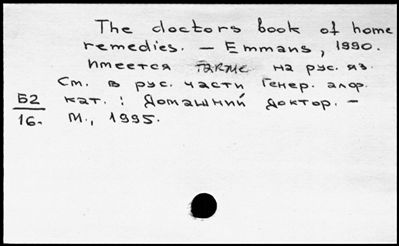 The doctors book of home
remedies. – Emmans, 1990.
Имеется также на рус. яз.
См. в рус. части Генер. алф.
Б2 кат.: Домашний доктор. –
16. М., 1995.